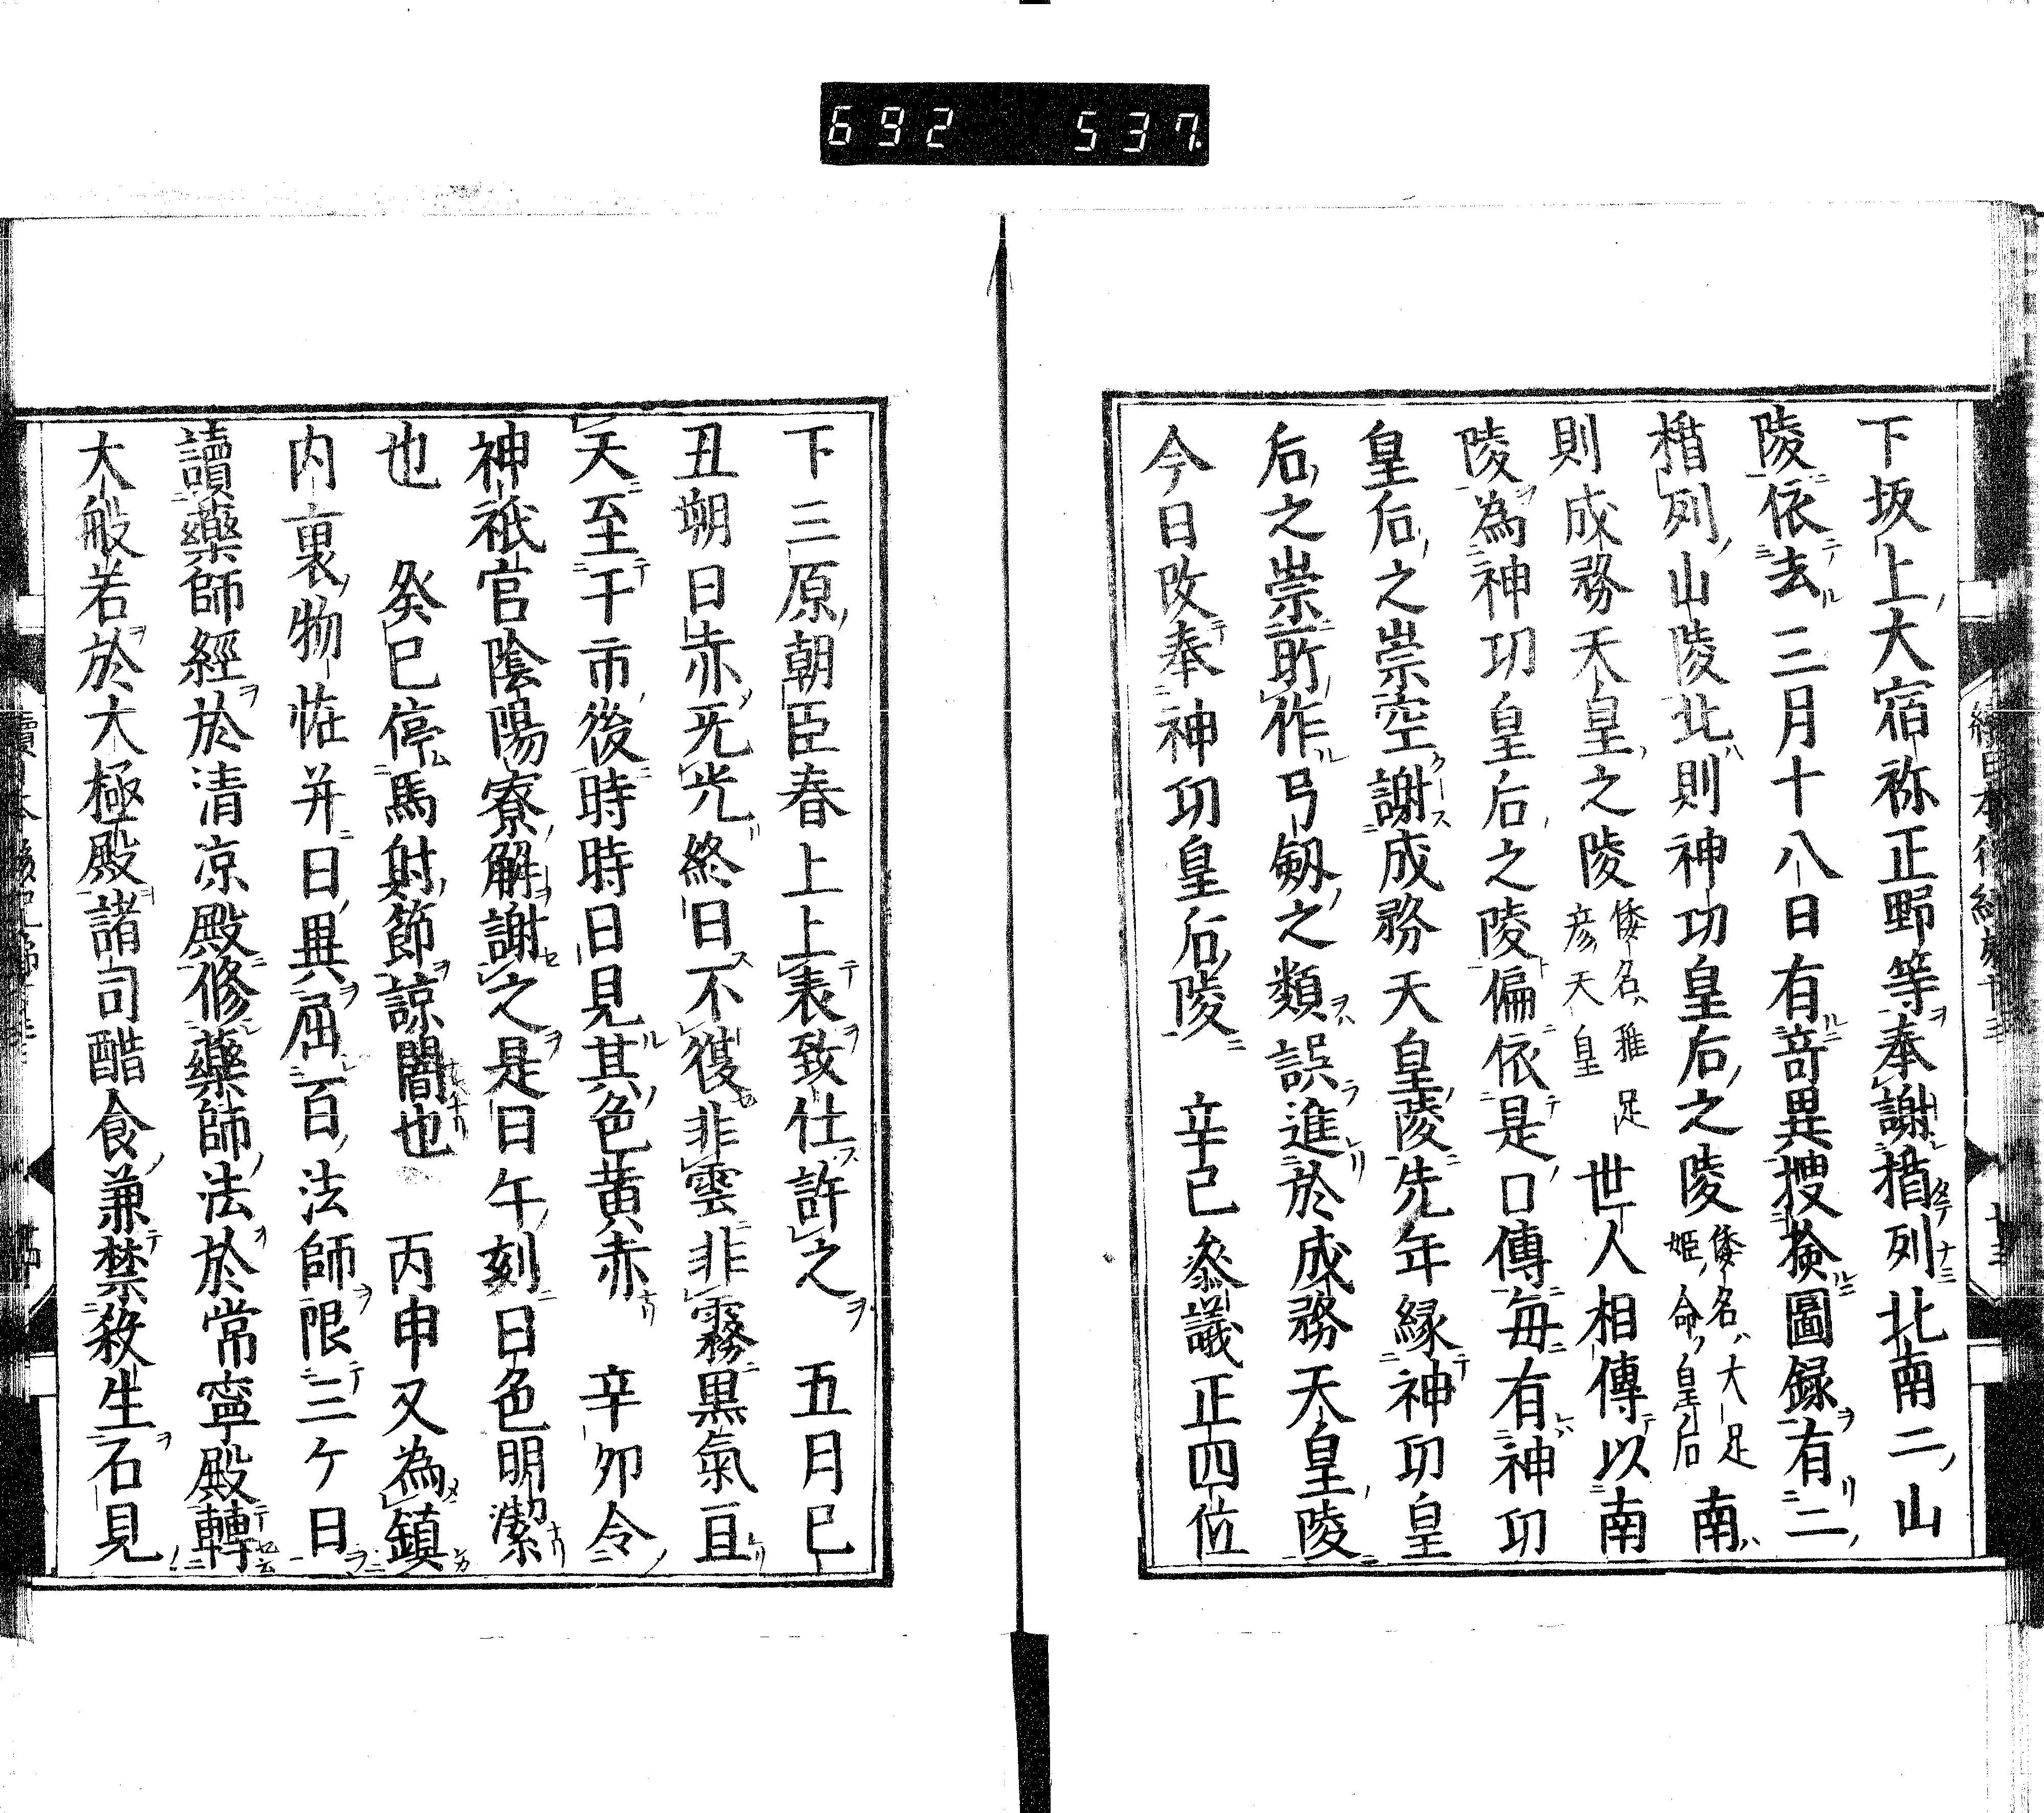 692 537
下坂上大宿祢正野等奉謝楯列北南二山
陵依去三月十八日有竒異捜檢圖録有二
楯列山陵北則神功皇后之陵倭名大足姫命皇后南
則成務天皇之陵倭名稚足彦天皇世人相傳以南
陵為神功皇后之陵偏依是口傳毎有神功
皇后之崇空謝成務天皇陵先年縁神功皇
后之崇所作弓劔之類誤進於成務天皇陵
今日改奉神功皇后陵 辛巳叅議正四位
下三原朝臣春上上表致仕許之 五月己
丑朔日赤无光終日不復非雲非霧黒氣亘
天至于市後時時日見其色黄赤 辛卯令
神祇官陰陽寮解謝之是日午刻日色明潔
也 癸巳停馬射節諒闇也 丙申又為鎮
内裏物恠并日異屈百法師限三ケ日
讀藥師經於清凉殿修藥師法於常寧殿轉
大般若於大極殿諸司醋食兼禁殺生石見